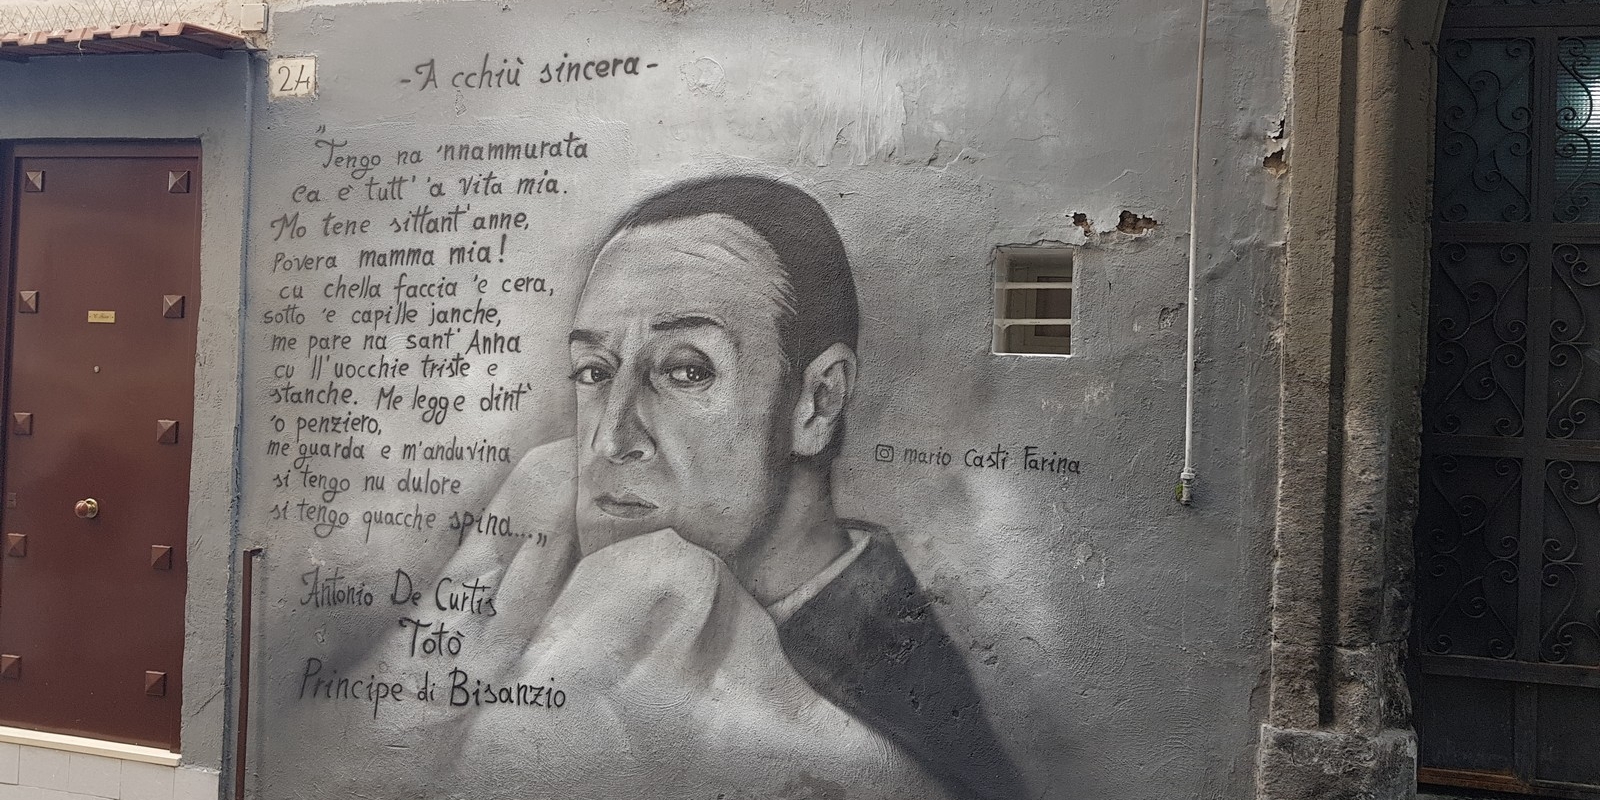 24
-A cchiù sincera-
"Tengo na 'nnammurata
ca è tutt' 'a vita mia.
Mo tene sittant'anne,
Povera mamma mia!
cu chella faccia 'e cera,
sotto 'e capille janche,
me pare na sant'Anna
cu ll'uocchie triste e
stanche. Me legge dint'
'o penziero,
me guarda e m'anduvina
si tengo nu dulore
si tengo quacche spina..."
Antonio De Curtis
Totò
Principe di Bisanzio
mario Casti Farina